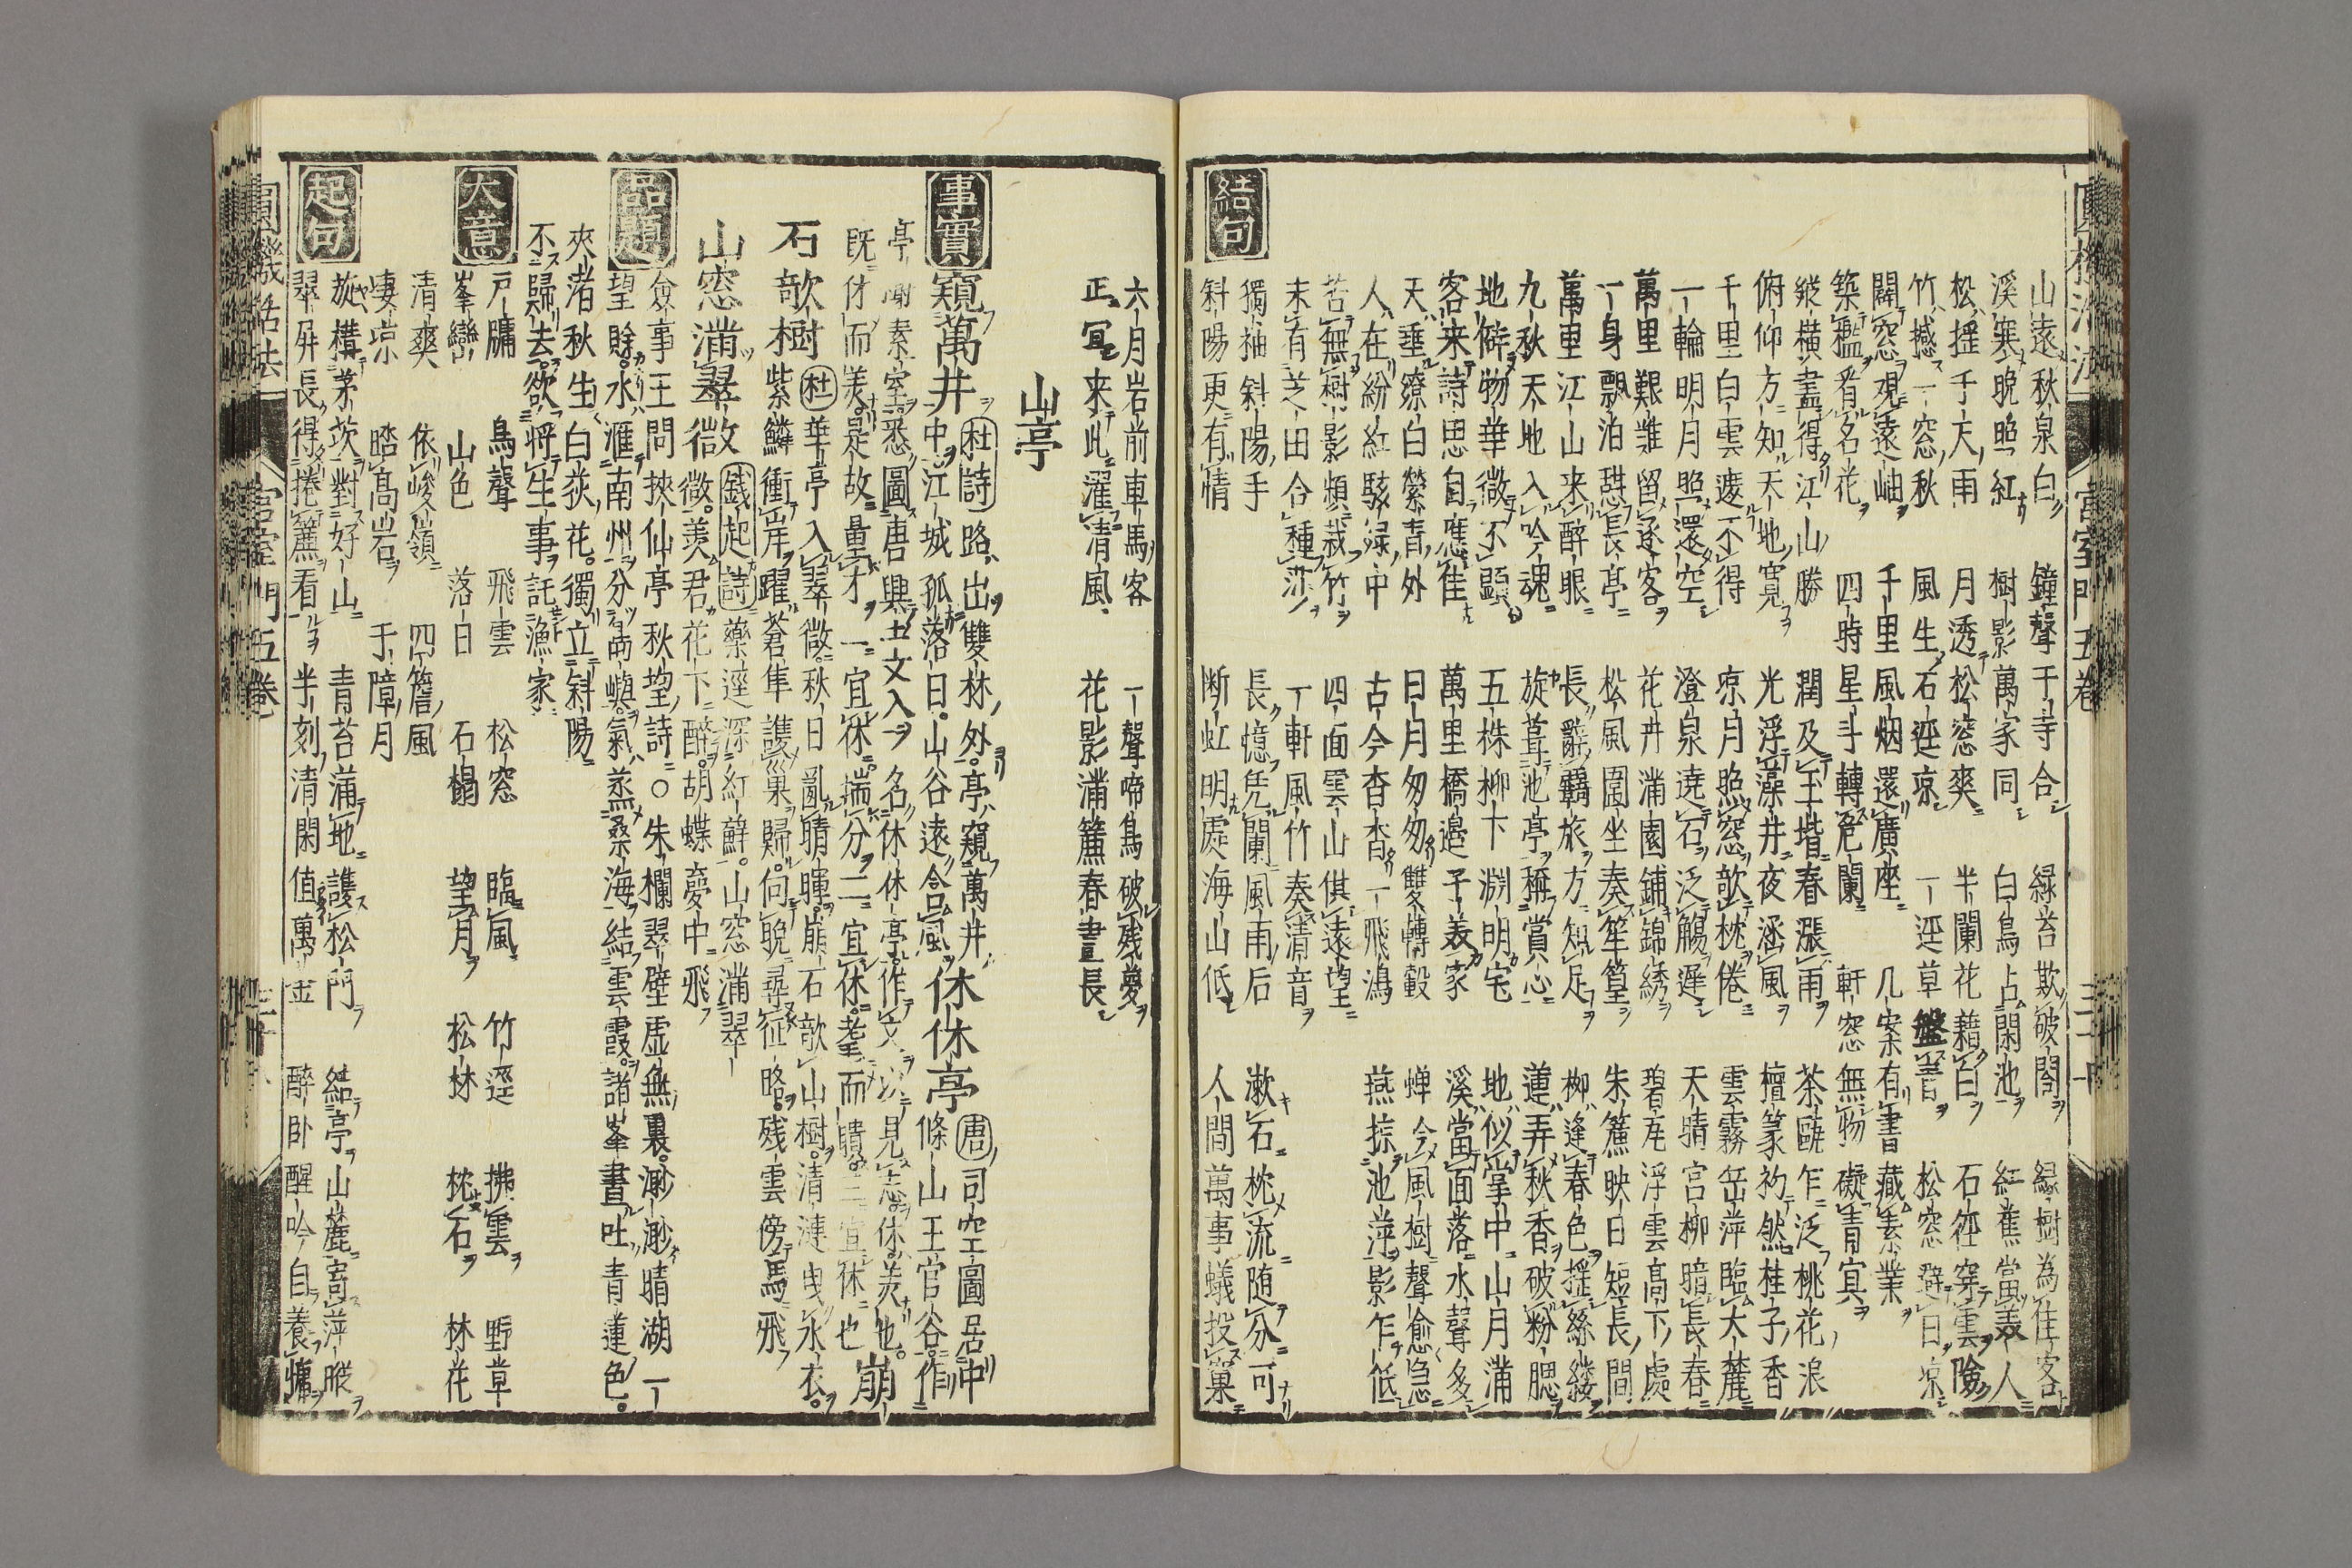 山遠秋泉白 鐘聲千寺合 緑苔欺破閣 緑樹為佳客
溪寒晩照紅 樹影萬家同 白鳥占閑池 紅蕉當美人
松揺千丈雨 月透松窓爽 半闌花藉白 石徑穿雲險
竹撼一窓秋 風生石逕凉 一逕草盤青 松窓避日凉
闢窓觀遠岫 千里風烟還廣座 几案有書藏素業
築檻看名花 四時星斗轉危闌 軒窓無物礙青冥
縱横盡得江山勝 潤及玉堦春漲雨 茶甌乍泛桃花浪
俯仰方知天地寛 光浮藻井夜涵風 檀篆初然桂子香
千里白雲遮不得 凉月照窓欹枕倦 雲霧岳萍臨大麓
一輪明月照還空 澄泉遶石泛觴遲 天晴宮柳暗長春
萬里艱難留逐客 花卉滿園鋪錦綉 碧庭浮雲高下處
一身飄泊甚長亭 松風圍坐奏笙篁 朱簾映日短長間
萬里江山来醉眼 長辭覇旅方知足 柳逢春色揺絲縷
九秋天地入吟魂 旋葺池亭稱賞心 蓮弄秋香破粉腮
地僻物華微不顕 五株柳下淵明宅 地似掌中山月滿
客来詩思自應佳 萬里橋邉子美家 溪當面落水聲多
天垂繚白縈青外 日月匆匆雙轉轂 蝉令風樹聲愈急
人在紛紅駭緑中 古今杳杳一飛鴻 燕掠池萍影乍低
苔無樹影頻栽竹 四面雲山倶遠望
未有芝田合種莎 一軒風竹奏清音
結句
獨袖斜陽手 長憶凭闌風雨后 漱石枕流随分可
斜陽更有情 断虹明處海山低 人間萬事蟻投窠
六月岩前車馬客 一聲啼鳥破残夢
正冝来此濯清風 花影滿簾春晝長
山亭
事實
窺萬井 杜詩路出雙林外亭窺萬井
中江城孤落日山谷遠含風
休休亭 唐司空圖居中條山王官谷作
亭𫝶素室悉圖唐興士文入名休休亭作文以見志休美也
既休而美是故量才一宜休揣分二宜休耄而聵三宜休也
崩石欹樹 杜華亭入翠微秋日亂晴暉崩石欹山樹清漣曳水衣
紫鱗衝岸躍蒼隼護巣歸向晩尋征路残雲傍馬飛
山窓滿翠微 錢起詩藥逕深紅蘚山窓滿翠
微羨君花下醉胡蝶夢中飛
品題
僉事王問挾仙亭秋望詩○朱欄翠壁虚無裏渺渺晴湖一
望賖水滙南州分𫝶嶼氣蒸桑海結雲霞諸峯晝吐青蓮色
夾渚秋生白荻花獨立斜陽
不歸去欲将生事託漁家
大意
戸牖 鳥聲 飛雲 松窓 臨風 竹逕 拂雲 野草
峯巒 山色 落日 石榻 望月 松林 枕石 林花
清爽 依峻嶺 四簷風
凄凉 踏高岩 千障月
起句
旋構茅茨對好山 青苔蒲地護松門 結亭山麓寄萍蹤
翠屏長得捲簾看 半刻清閑値萬金 醉卧醒吟自養慵
圓機活法 宮室門五巻